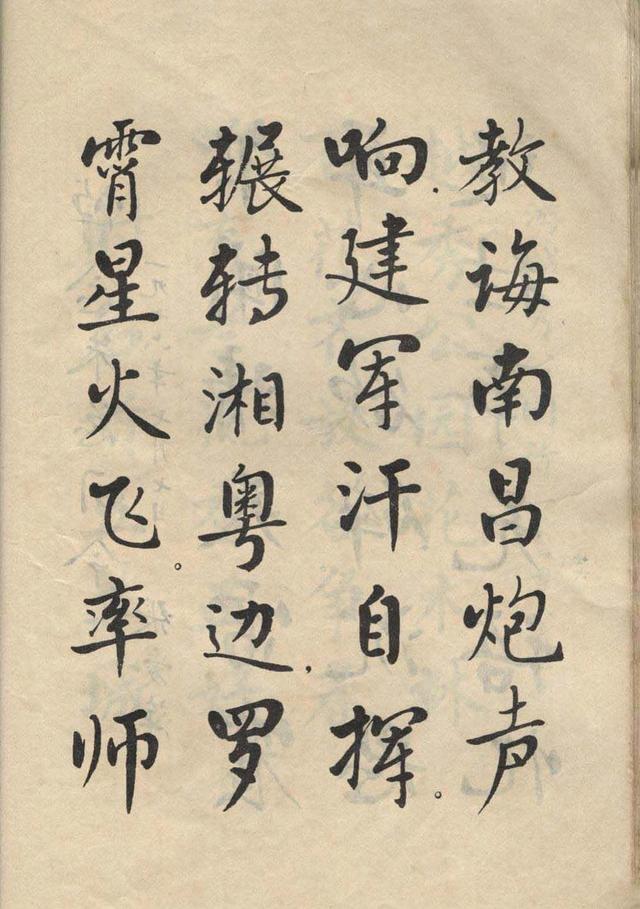 教诲南昌炮声
响.建军汗自挥。
辗转湘粤边.罗
霄星火飞。率师